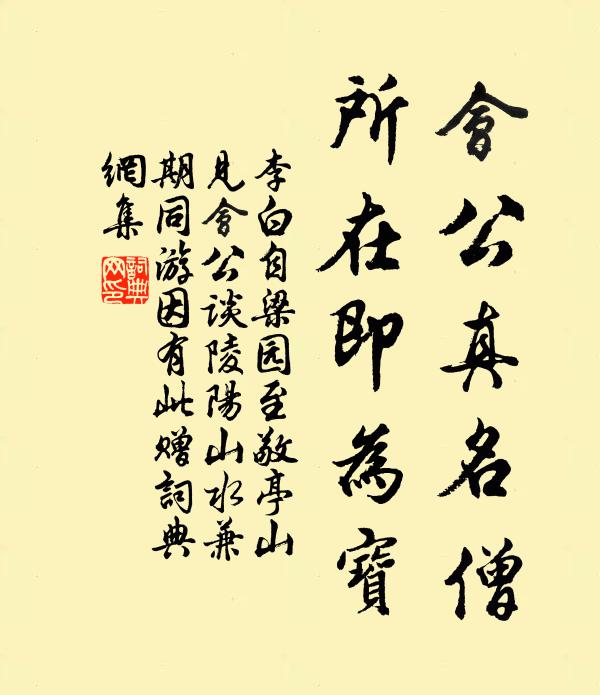 會公真名僧
所在即為寶
李白自梁园至敬亭山
見會公谈陵陽山水兼
期同游因有此赠詞典
網集
詞典
网印